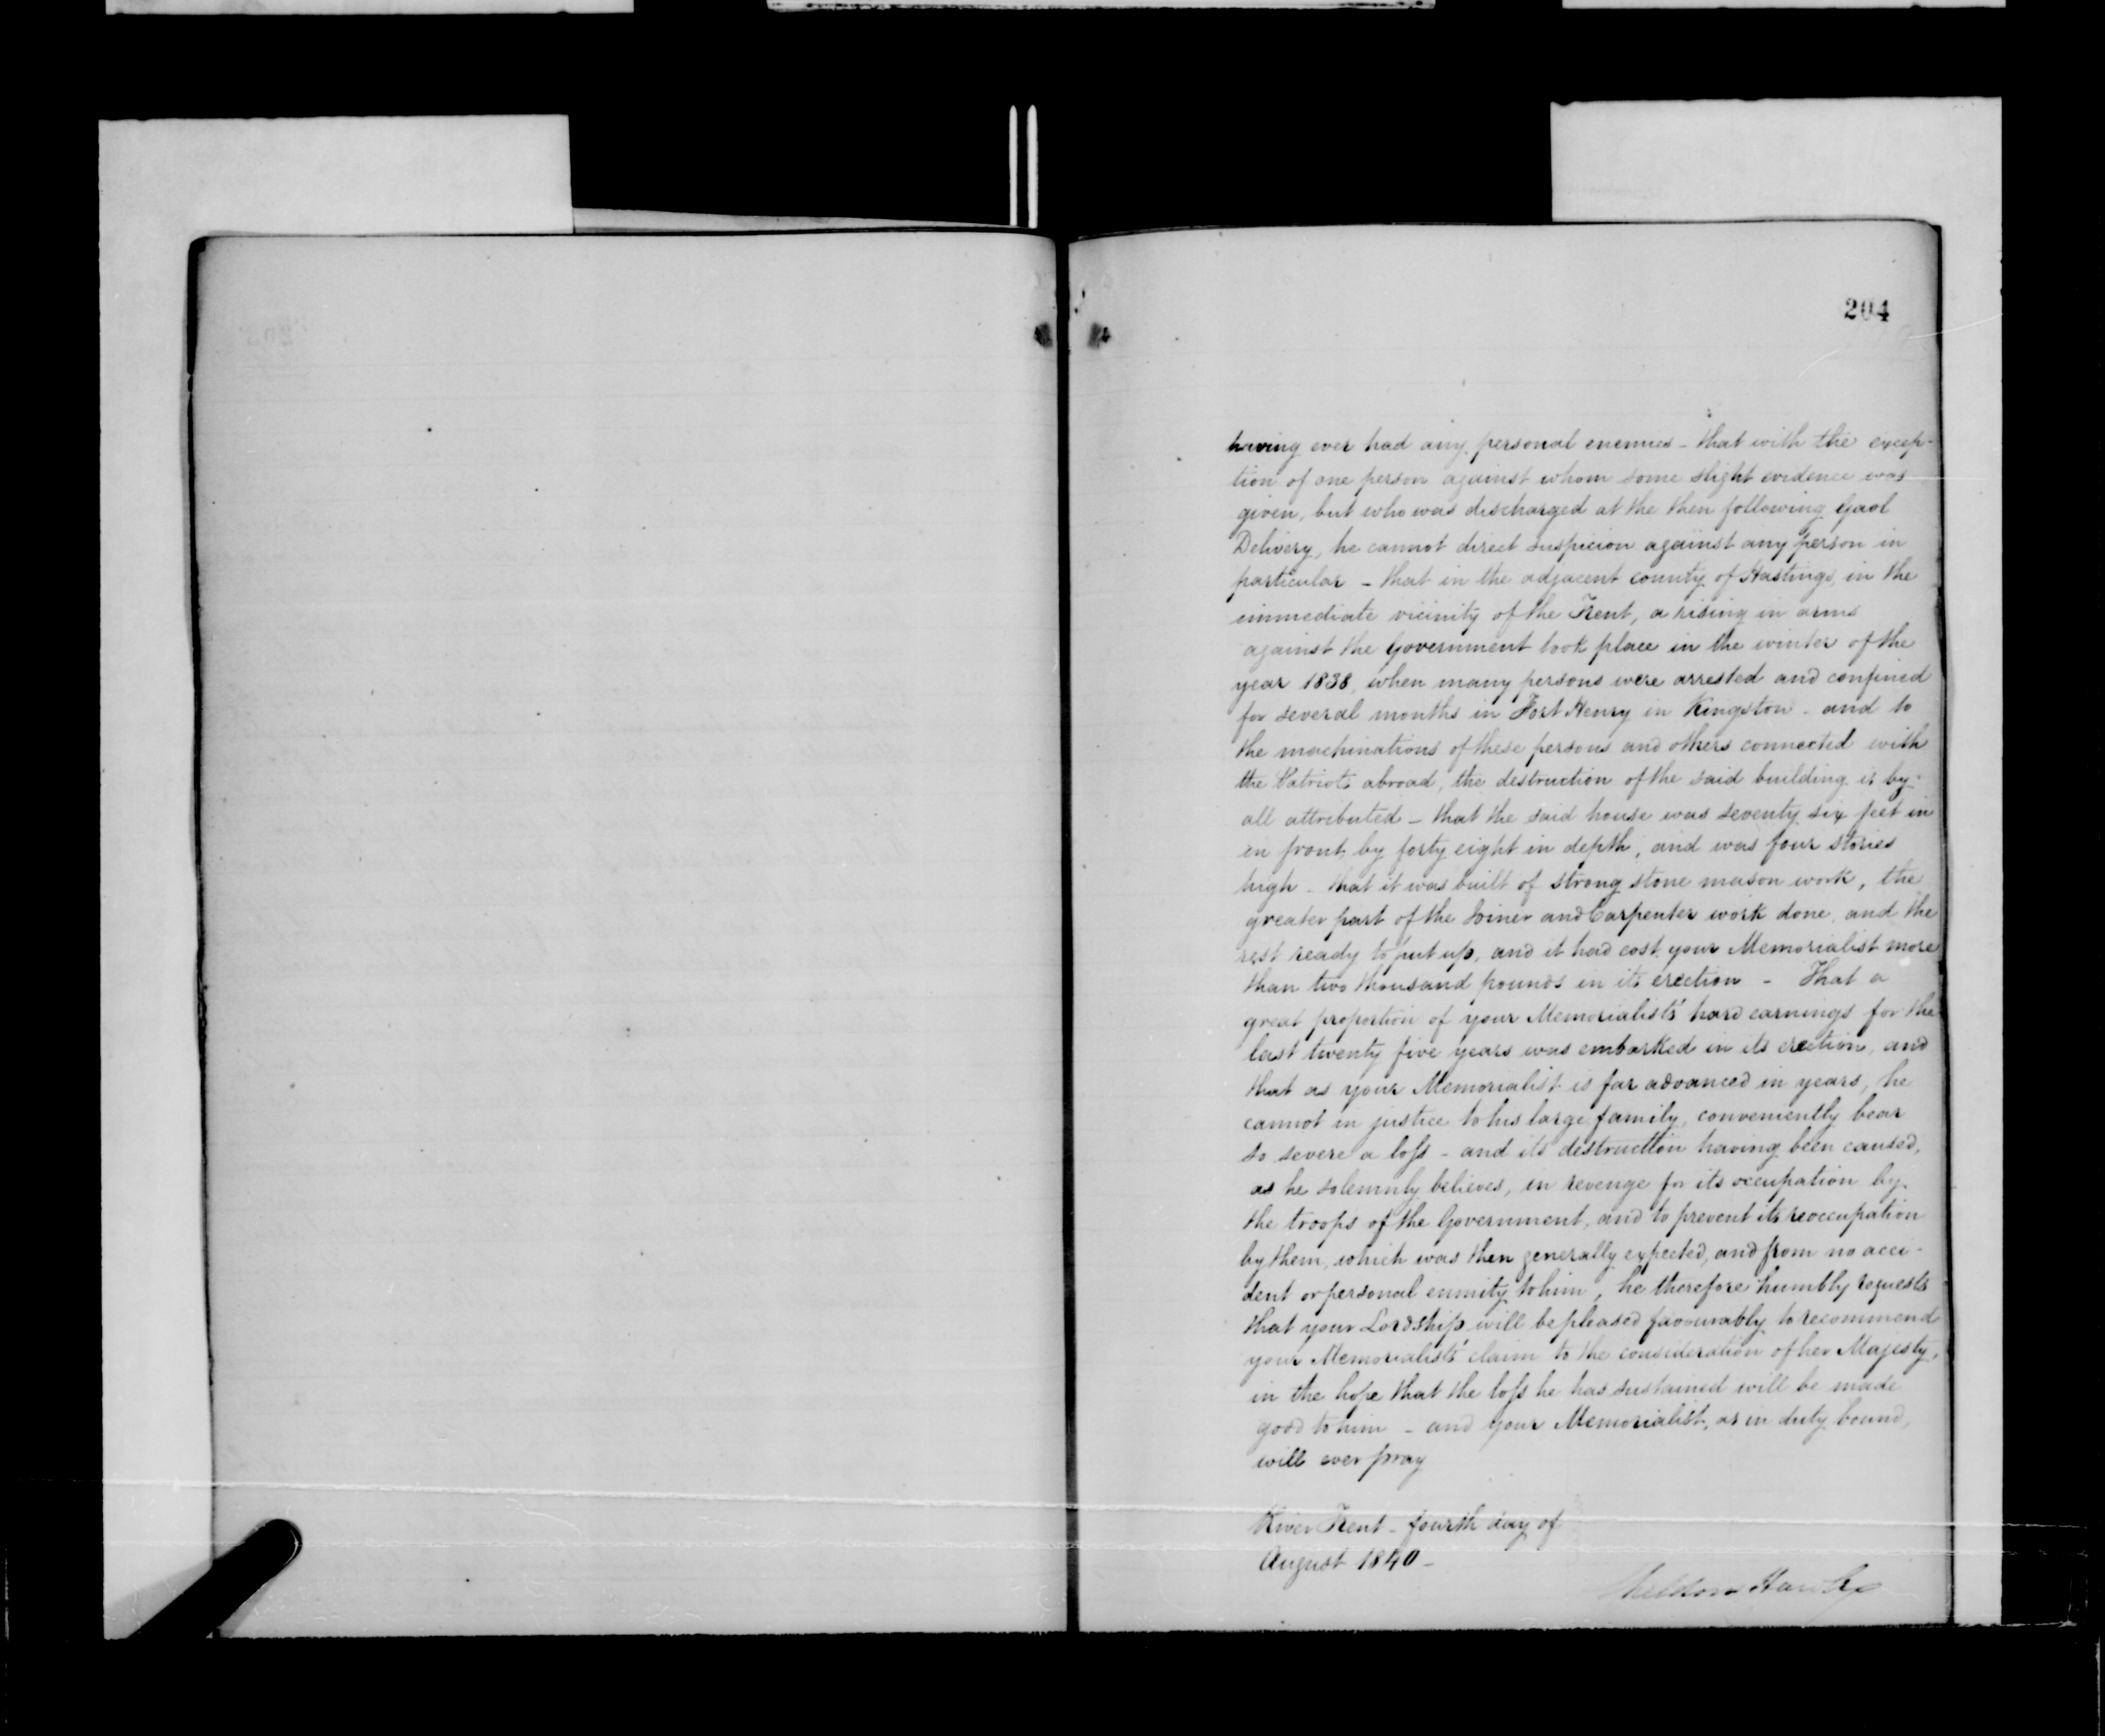 204
having ever had any personal enemies - that with the excep-
tion of one person against whom some slight evidence was
given, but who was discharged at the then following Gaol
Delivery, he cannot direct suspicion against any person in
particular - that in the adjacent county of Hastings, in the
immediate vicinity of the Trent, a rising in arms
against the Government took place in the winter of the
year 1838, when many persons were arrested and confined
for several months in Fort Henry in Kingston - and to
the machinations of these persons and others connected with
the Patriots abroad, the destruction of the said building is by
all attributed - that the said house was seventy six feet in
in front, by forty eight in depth, and was four stories
high - that it was built of strong stone mason work, the
greater part of the Joiner and Carpenter work done, and the
rest ready to put up, and it had cost your Memorialist more
than two thousand pounds in its erection - That a
great proportion of your Memorialists' hard earnings for the
last twenty five years was embarked in its erection, and
that as your Memorialist is far advanced in years, he
cannot in justice to his large family, conveniently bear
so severe a loss - and its destruction having been caused,
as he solemnly believes, in revenge for its occupation by
the troops of the Government, and to prevent its reoccupation
by them, which was then generally expected, and from no acci-
dent or personal enmity to him, he therefore humbly requests
that your Lordship will be pleased favourably to recommend
your Memorialists' claim to the consideration of her Majesty,
in the hope that the loss he has sustained will be made
good to him - and your Memorialist, as in duty bound,
will ever pray
River Trent - fourth day of
August 1840 -
Sheldon Hawley